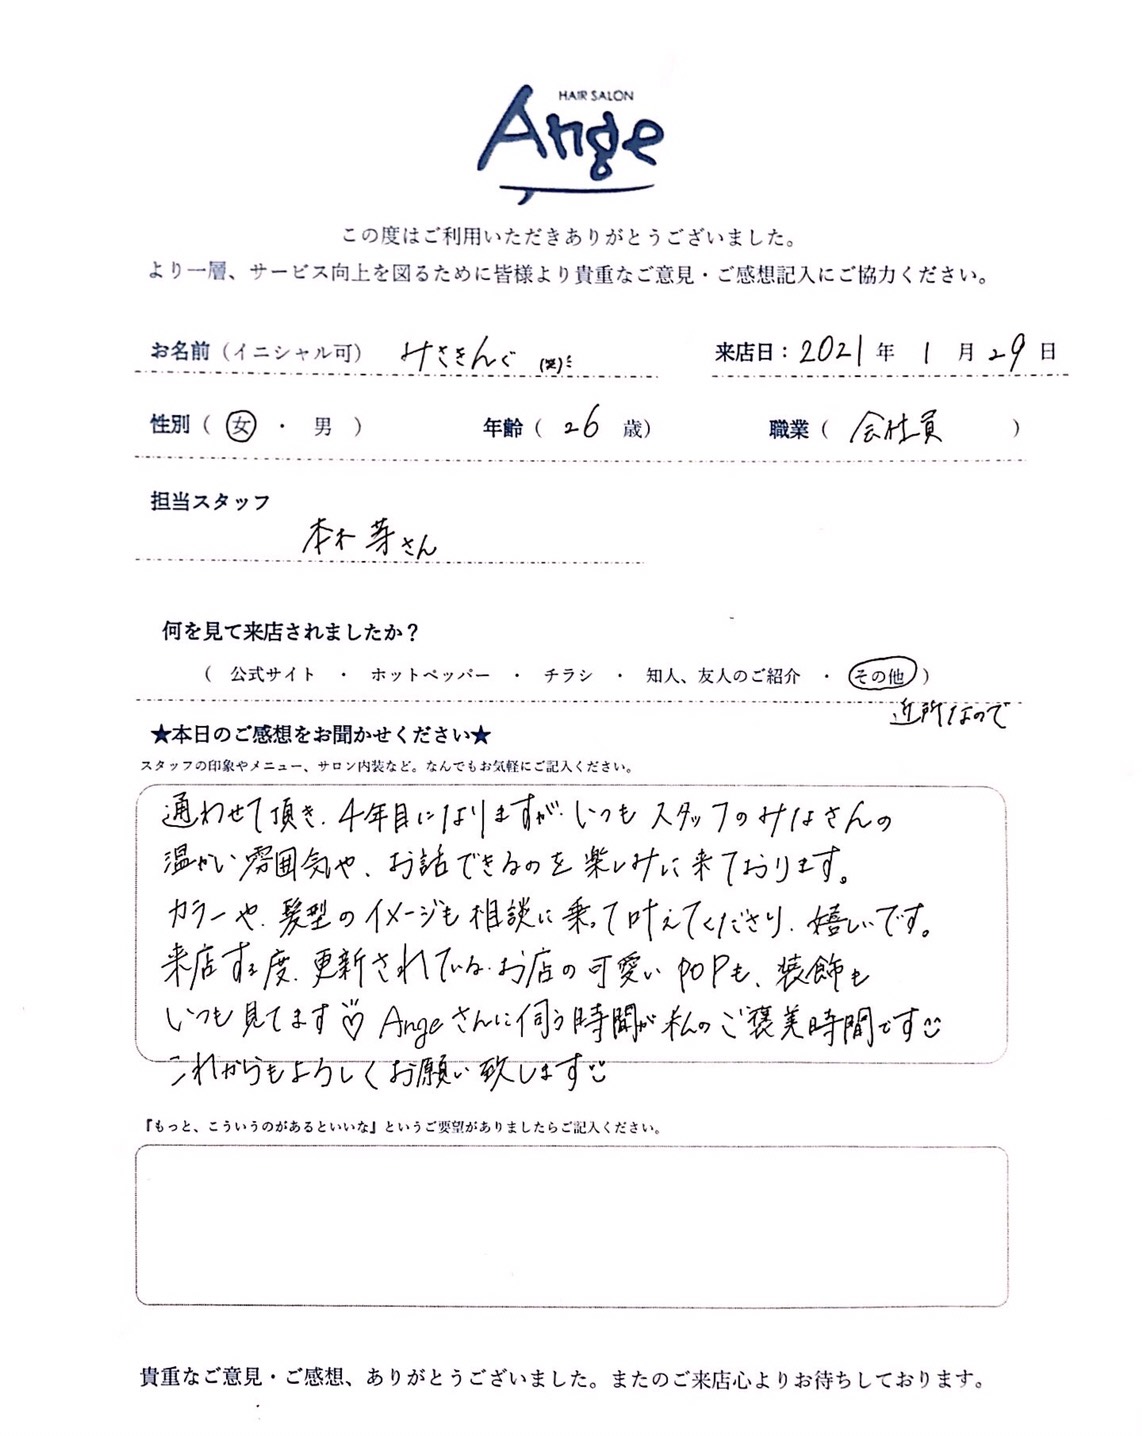 HAIR SALON
Ange
この度はご利用いただきありがとうございました。
より一層、サービス向上を図るために皆様より貴重なご意見・ご感想記入にご協力ください。
お名前（イニシャル可） みさきんぐ (笑)ミ 来店日：2021年 1月29日
性別（ 女 ・ 男 ） 年齢（ 26 歳） 職業（ 会社員 ）
担当スタッフ
本木 芽さん
何を見て来店されましたか？
（ 公式サイト ・ ホットペッパー ・ チラシ ・ 知人、友人のご紹介 ・ その他 ）
近所なので
★本日のご感想をお聞かせください★
スタッフの印象やメニュー、サロン内装など。なんでもお気軽にご記入ください。
通わせて頂き、4年目になりますが、いつもスタッフのみなさんの
温かい雰囲気や、お話できるのを楽しみに来ております。
カラーや、髪型のイメージも相談に乗って叶えてくださり、嬉しいです。
来店する度、更新されているお店の可愛いPOPも、装飾も
いつも見てます♡ Angeさんに伺う時間が私のご褒美時間です
これからもよろしくお願い致します
『もっと、こういうのがあるといいな』というご要望がありましたらご記入ください。
貴重なご意見・ご感想、ありがとうございました。またのご来店心よりお待ちしております。